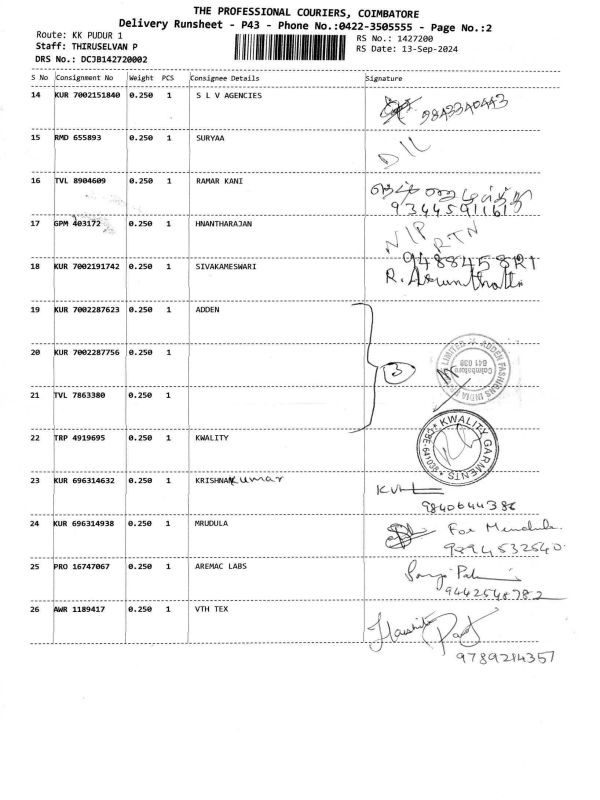 THE PROFESSIONAL COURIERS, COIMBATORE
Delivery Runsheet - P43 - Phone No.:0422-3505555 - Page No.:2
Route: KK PUDUR 1
RS No.: 1427200
Staff: THIRUSELVAN P
RS Date: 13-Sep-2024
DRS No.: DCJB142720002
S No Consignment No Weight PCS Consignee Details Signature
14 KUR 7002151840 0.250 1 S L V AGENCIES
15 RMD 655893 0.250 1 SURYAA
D/L
16 TVL 8904609 0.250 1 RAMAR KANI
9344591161
17 GPM 403172 0.250 1 HNANTHARAJAN
N/P RTN
18 KUR 7002191742 0.250 1 SIVAKAMESWARI
19 KUR 7002287623 0.250 1 ADDEN
20 KUR 7002287756 0.250 1
3
ADDEN FASHIONS INDIA LIMITED
Coimbatore
641 038
21 TVL 7863380 0.250 1
22 TRP 4919695 0.250 1 KWALITY
KWALITY GARMENTS
CBE-641038
23 KUR 696314632 0.250 1 KRISHNAKumar
9840644386
24 KUR 696314938 0.250 1 MRUDULA
For Mrudula.
9894532540
25 PRO 16747067 0.250 1 AREMAC LABS
9442548782
26 AWR 1189417 0.250 1 VTH TEX
9789214357